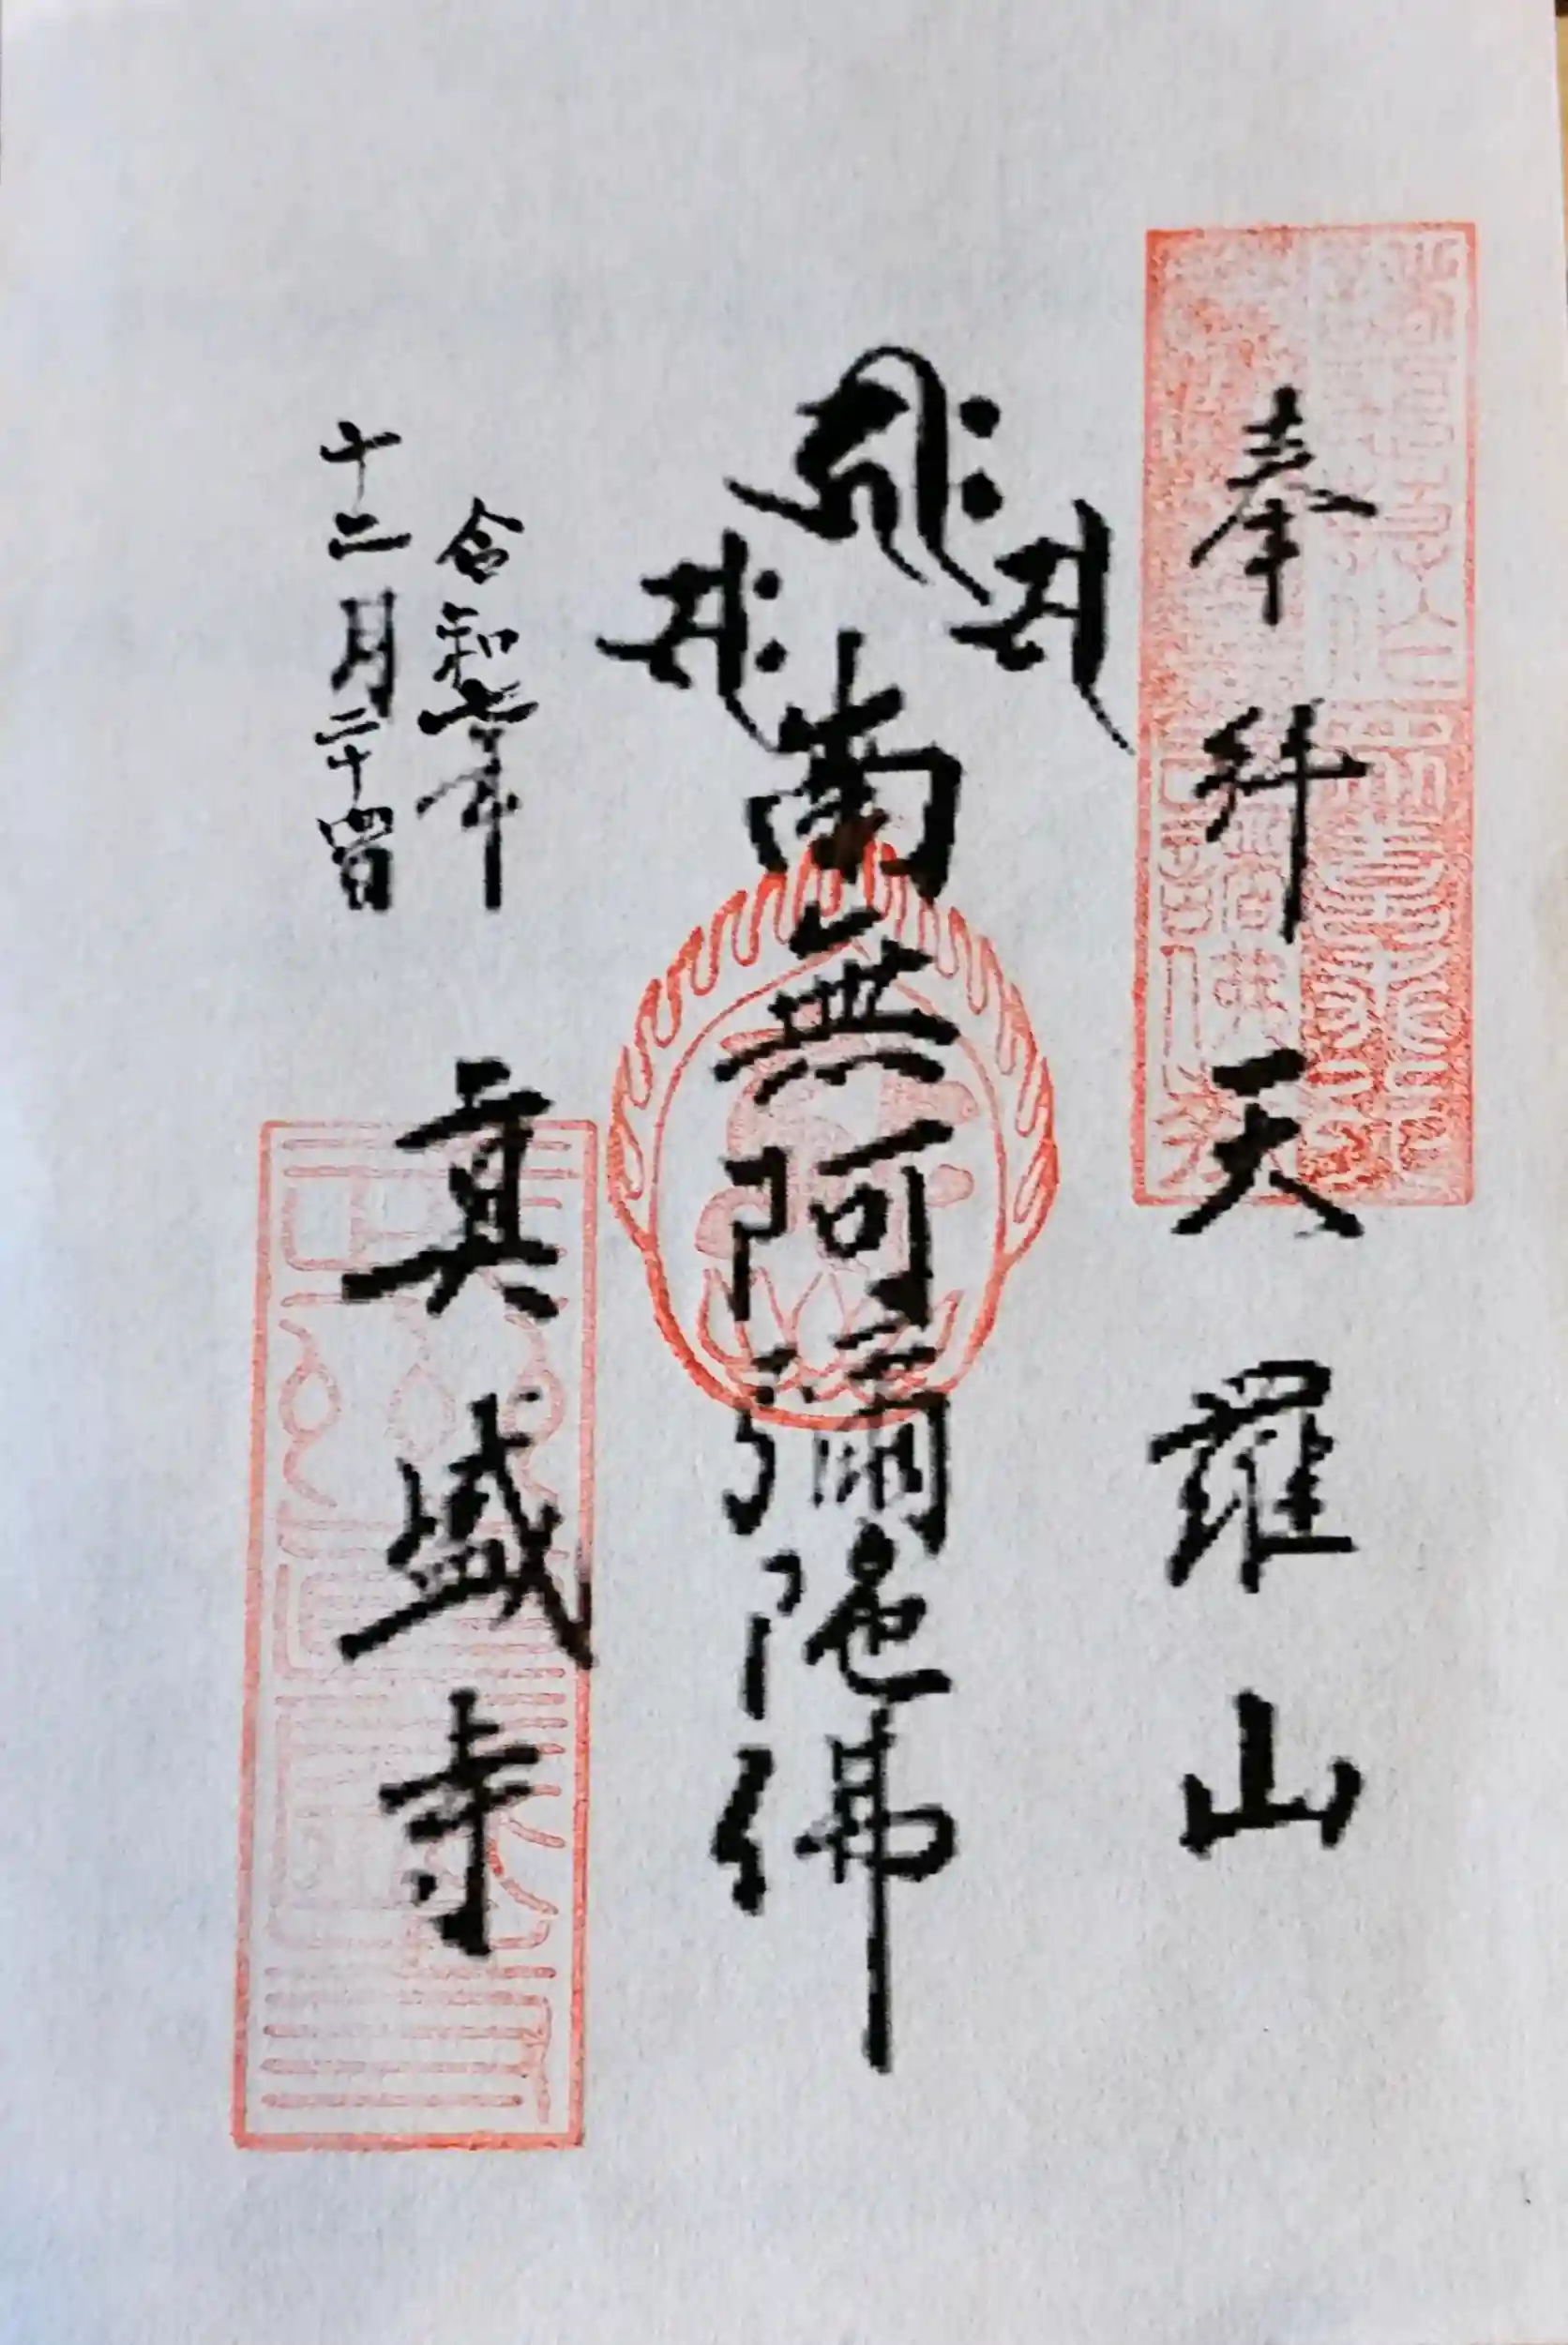 奉拝 天羅山
南無阿彌陀佛
令和七年
十二月二十四日
眞盛寺